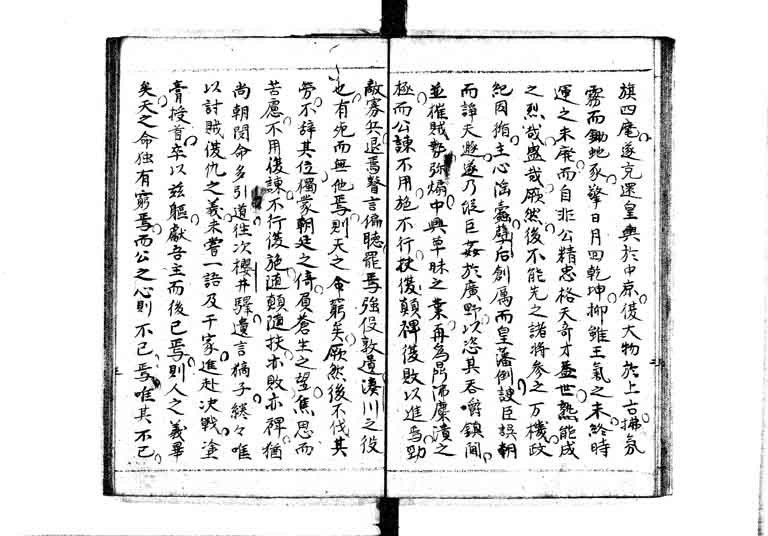 旗四麾遂克還皇輿於中京復大物於上古拂氛
霧而鋤地豕擎日月四乾坤抑雖王氣之未終時
運之未廃而自非公精忠格天奇才蓋世孰能成
之烈哉盛哉厥然後不能先之諸将参之万機政
紀因循主心滔蠱孽后創厲而皇藩倒諛臣誤朝
而諍天遯遂乃餒臣姦於廣野以恣其呑噬鎮間
並催賊勢弥熾中興草昧之業再為鼎沸糜潰之
極而公諫不用施不行扶復顛裨復敗以進焉勁
敵寡兵退焉聲言偏聴罷焉強役敦遺湊川之役
也有死而無他焉則天之命窮矣厥然後不伐其
労不辞其位獨蒙朝廷之倚負蒼生之望焦思而
苦慮不用復諫不行復施随顛随扶亦敗亦裨猶
尚朝聞命多引道往次櫻井驛遺言犒子終々唯
以討賊復仇之義未嘗一語及于家進赴决戦塗
膏授首卒以茲軀献吾主而後已焉則人之義畢
矣天之命独有窮焉而公之心則不已焉唯其不已